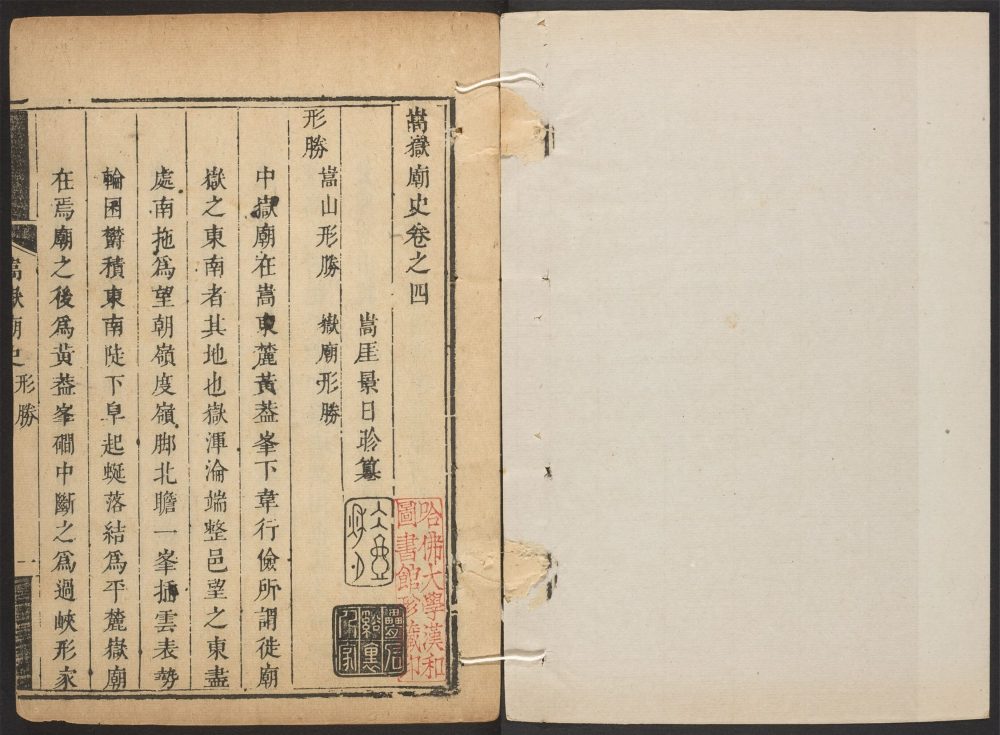 嵩嶽廟史卷之四
嵩厓景日昣纂
形勝
嵩山形勝　嶽廟形勝
中嶽廟在嵩東麓黃葢峯下韋行儉所謂徙廟
嶽之東南者其地也嶽渾淪端整邑望之東盡
處南拖爲望朝嶺度嶺脚北瞻一峯插雲表勢
輪囷鬱積東南陡下阜起蜒落結爲平麓嶽廟
在焉廟之後爲黃葢峯磵中斷之爲過峽形家
嵩嶽廟史
形勝
一
哈佛大學漢和
圖書館珍藏印